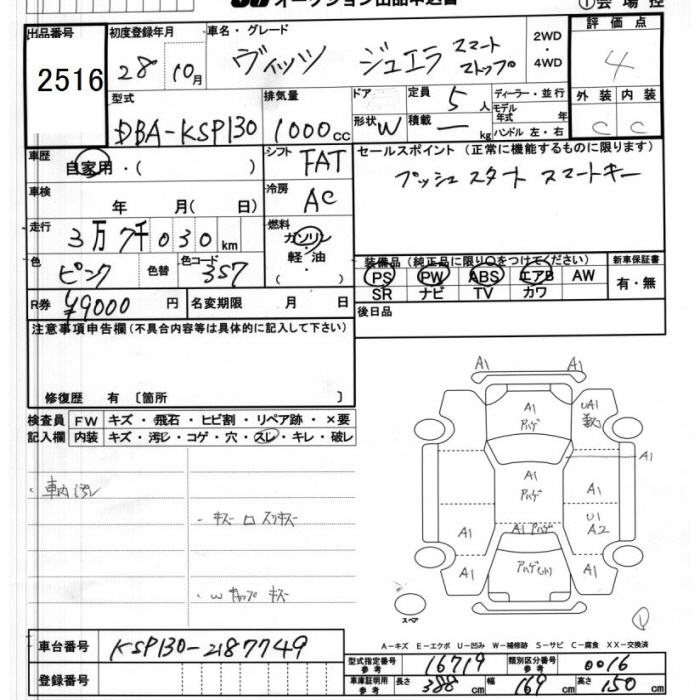 オークション出品申込書
①会場控
出品番号 初度登録年月 車名・グレード 2WD・4WD 評価点
2516 28 10月 ヴィッツ ジュエラ スマートストップP 4
型式 排気量 ドア 定員 5人 ディーラー・並行 外装 内装
DBA-KSP130 1000cc 形状 W 積載 ー kg モデル年式 年 ハンドル 左・右 C C
車歴 自家用・( ) シフト FAT セールスポイント (正常に機能するものに限ります)
車検 年 月(日) 冷房 AC プッシュスタート スマートキー
走行 3万7千030km 燃料 ガソリン・軽油・
色 ピンク 色替 色コード 3S7
装備品 (純正品に限り○をつけてください) 新車保証書
PS PW ABS エアB AW 有・無
SR ナビ TV カワ
R券 ¥9000円 名変期限 月 日 後日品
注意事項申告欄(不具合内容等は具体的に記入して下さい)
修復歴 有 〔箇所 〕
検査員記入欄 FW キズ・飛石・ヒビ割・リペア跡・×要
内装 キズ・汚じ・コゲ・穴・スレ・キレ・破レ
・車内汚レ
・キズ ロ スリキズ
・W キャップ キズ
A1
A1
A1 アハゲ
UA1
A1
A1 アハゲ
A1
U1
A2
A1
A1 アハゲ
A1
アハゲ(小)
A1
スペア
A－キズ E－エクボ U－凹み W－補修跡 S－サビ C－腐食 XX－交換済
車台番号 KSP130-2187749
型式指定番号 参考 16719 類別区分番号 参考 0016
登録番号
車庫証明用 参考 長さ 388cm 幅 169cm 高さ 150cm